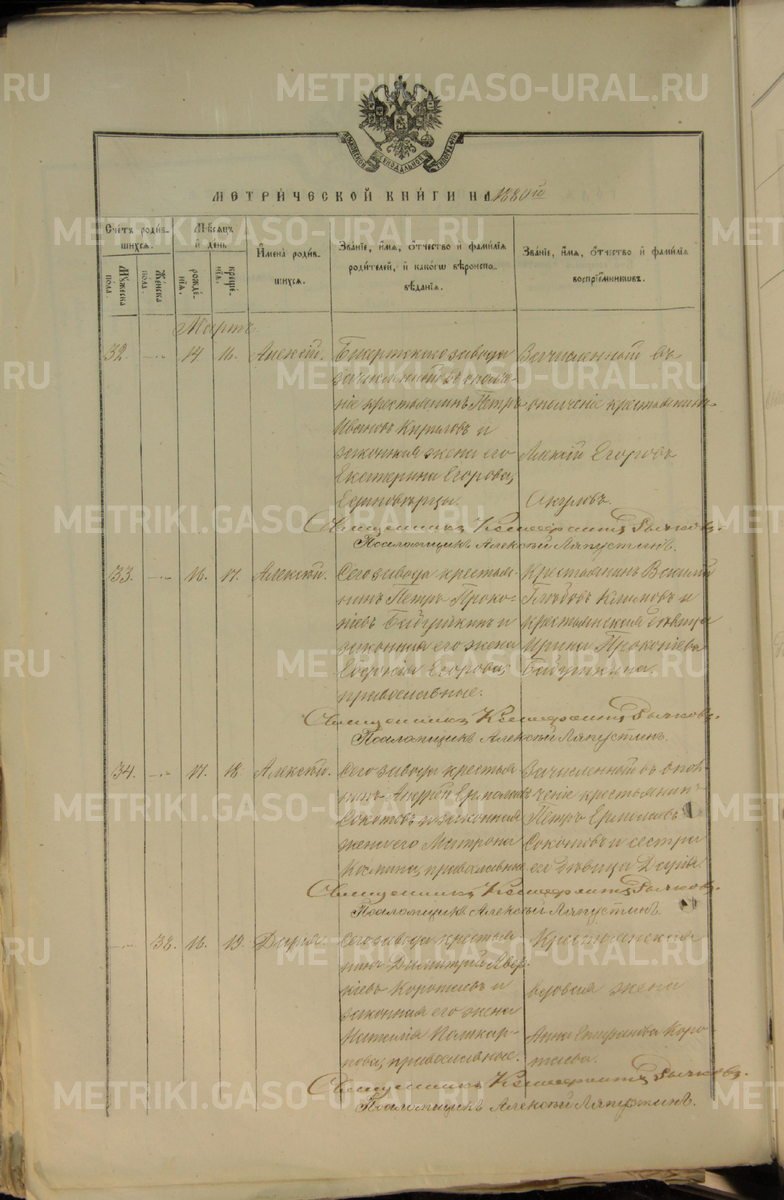 METRIKI.GASO-URAL.RU
МОСКОВСКОЙ СѴНОДАЛЬНОЙ ТИПОГРАФІИ
МЕТРИ́ЧЕСКОЙ КНИ́ГИ НА 1880й
Сче́тъ роди́вшихсѧ.
Мꙋ́жеска пола.
Же́нска пола.
Мѣ́сѧцъ и҆ де́нь
рожде́нїѧ.
креще́нїѧ.
И҆мена̀ роди́вшихсѧ.
Зва́нїе, и҆́мѧ, ѻ҆́тчество и҆ фами́лїѧ роди́телей, и҆ како́гѡ вѣроисповѣ́данїѧ.
Зва́нїе, и҆́мѧ, ѻ҆́тчество и҆ фами́лїѧ воспрїе́мниковъ.
Мартъ.
32. 14 16. Алексій.
Бисертскаго завода
зачисленный въ ополче-
ніе крестьянинъ Петръ
Ивановъ Кириловъ и
законная жена его
Екатерина Егорова,
Единовѣрцы.
Зачисленный въ
ополченіе крестьянинъ
Алексій Егоровъ
Акуловъ.
Священникъ Ксенофонтъ Рычковъ.
Псаломщикъ Алексѣй Ляпустинъ.
33. 16. 17. Алексій.
Сего завода крестья-
нинъ Петръ Проко-
піевъ Бабушкинъ и
законная его жена
Евфимія Егорова,
православные.
Крестьянинъ Василій
Глѣбовъ Климовъ и
крестьянская дѣвица
Ирина Прокопіева
Бабушкина.
Священникъ Ксенофонтъ Рычковъ.
Псаломщикъ Алексѣй Ляпустинъ.
34. 17. 18. Алексѣй.
Сего завода крестья
нинъ Андрей Ермолаевъ
и законная
жена его Матрона
Козмина, православные
Зачисленный въ опол-
ченіе крестьянинъ
Петръ Ермолаевъ
и сестра
его дѣвица Дарья.
Священникъ Ксенофонтъ Рычковъ.
Псаломщикъ Алексѣй Ляпустинъ.
38. 18. 19. Дарія.
Сего завода крестья
нинъ Димитрій Авер-
кіевъ Коротаевъ и
законная его жена
Наталія Поликар-
пова, православные.
Крестьянская
вдовая жена
Анна Коро-
таева.
Священникъ Ксенофонтъ Рычковъ.
Псаломщикъ Алексѣй Ляпустинъ.